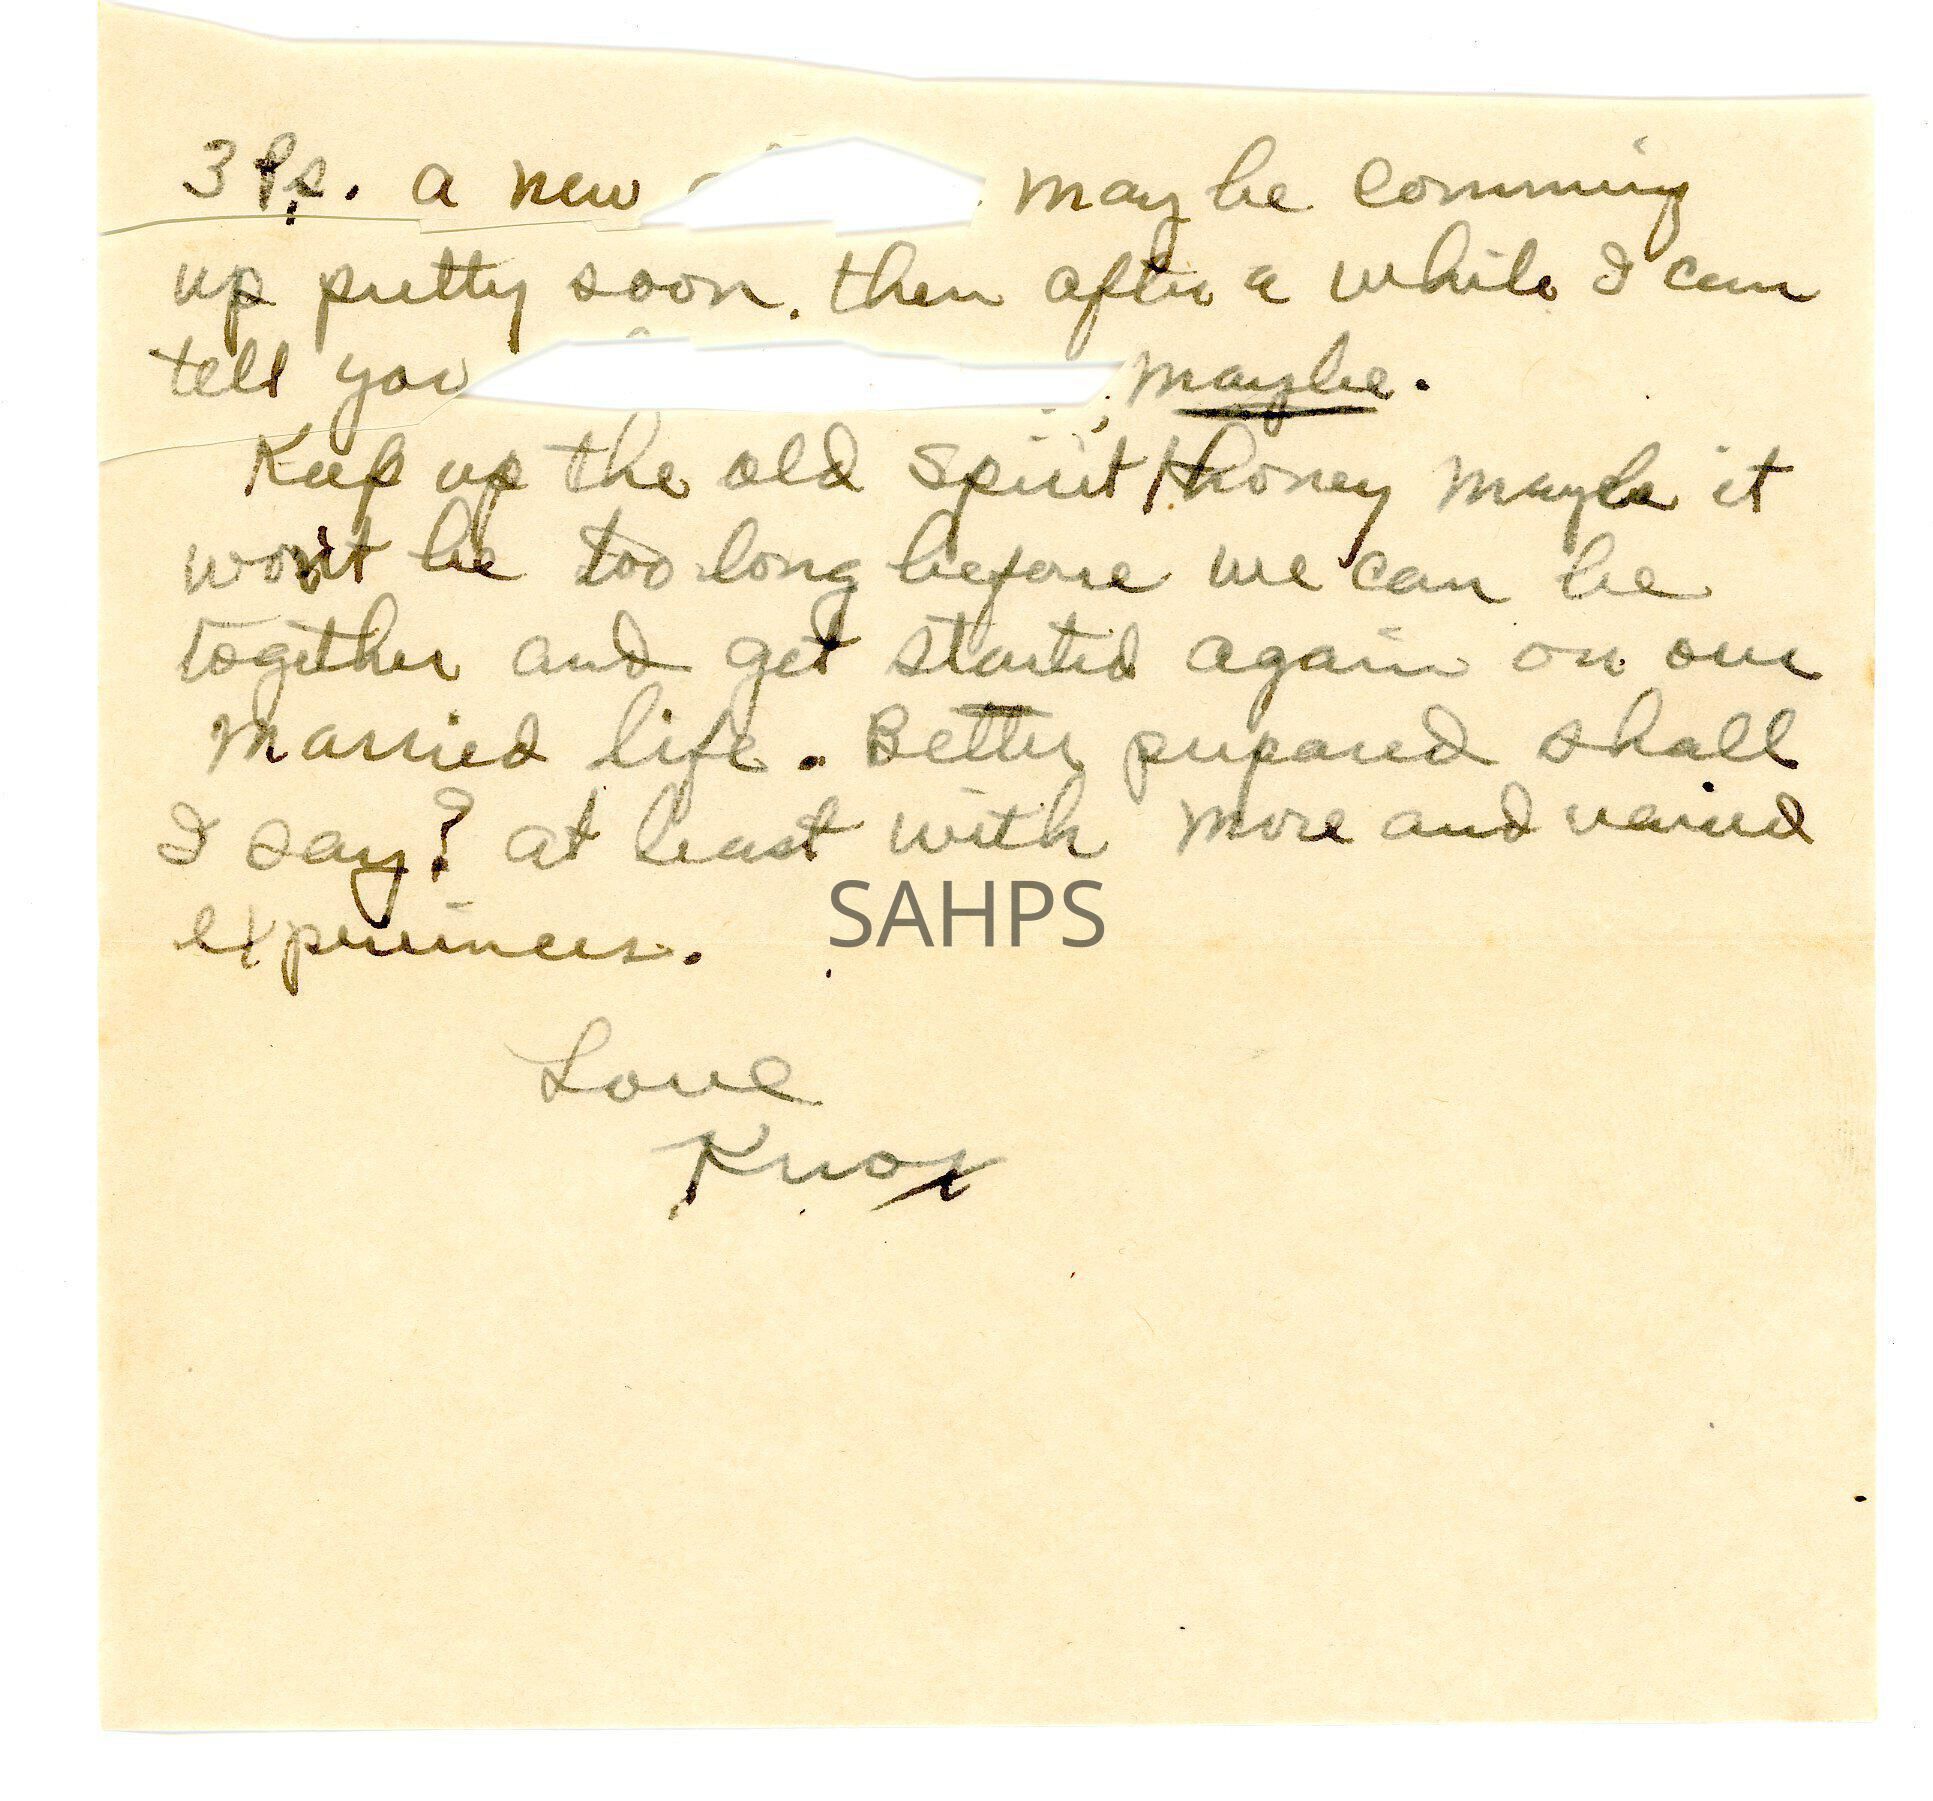 3 Ps. a new maybe comming
up pretty soon. then after a while I can
tell you maybe.
Keep up the old spirit honey maybe it
won't be too long before we can be
together and get started again on our
married life. Better prepared shall
I say? at least with more and varied
experinces.
SAHPS
Love
Knox